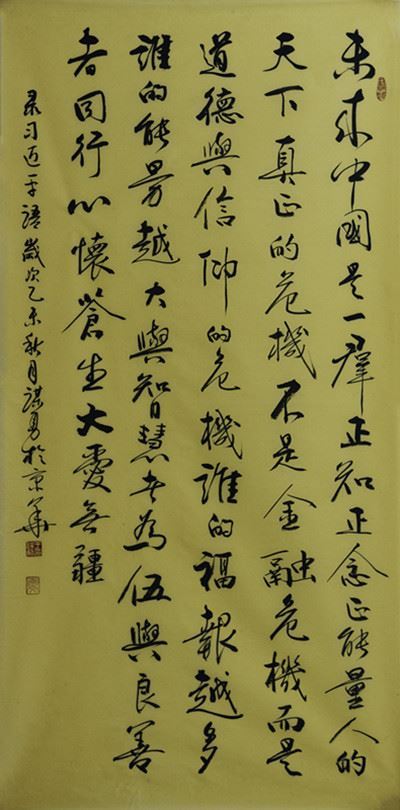 未来中國是一羣正知正念正能量人的
天下真正的危機不是金融危機而是
道德與信仰的危機誰的福報越多
誰的能量越大與智慧者為伍與良善
者同行心懷蒼生大愛無疆
录习近平語歲次乙未秋月謀勇於京華